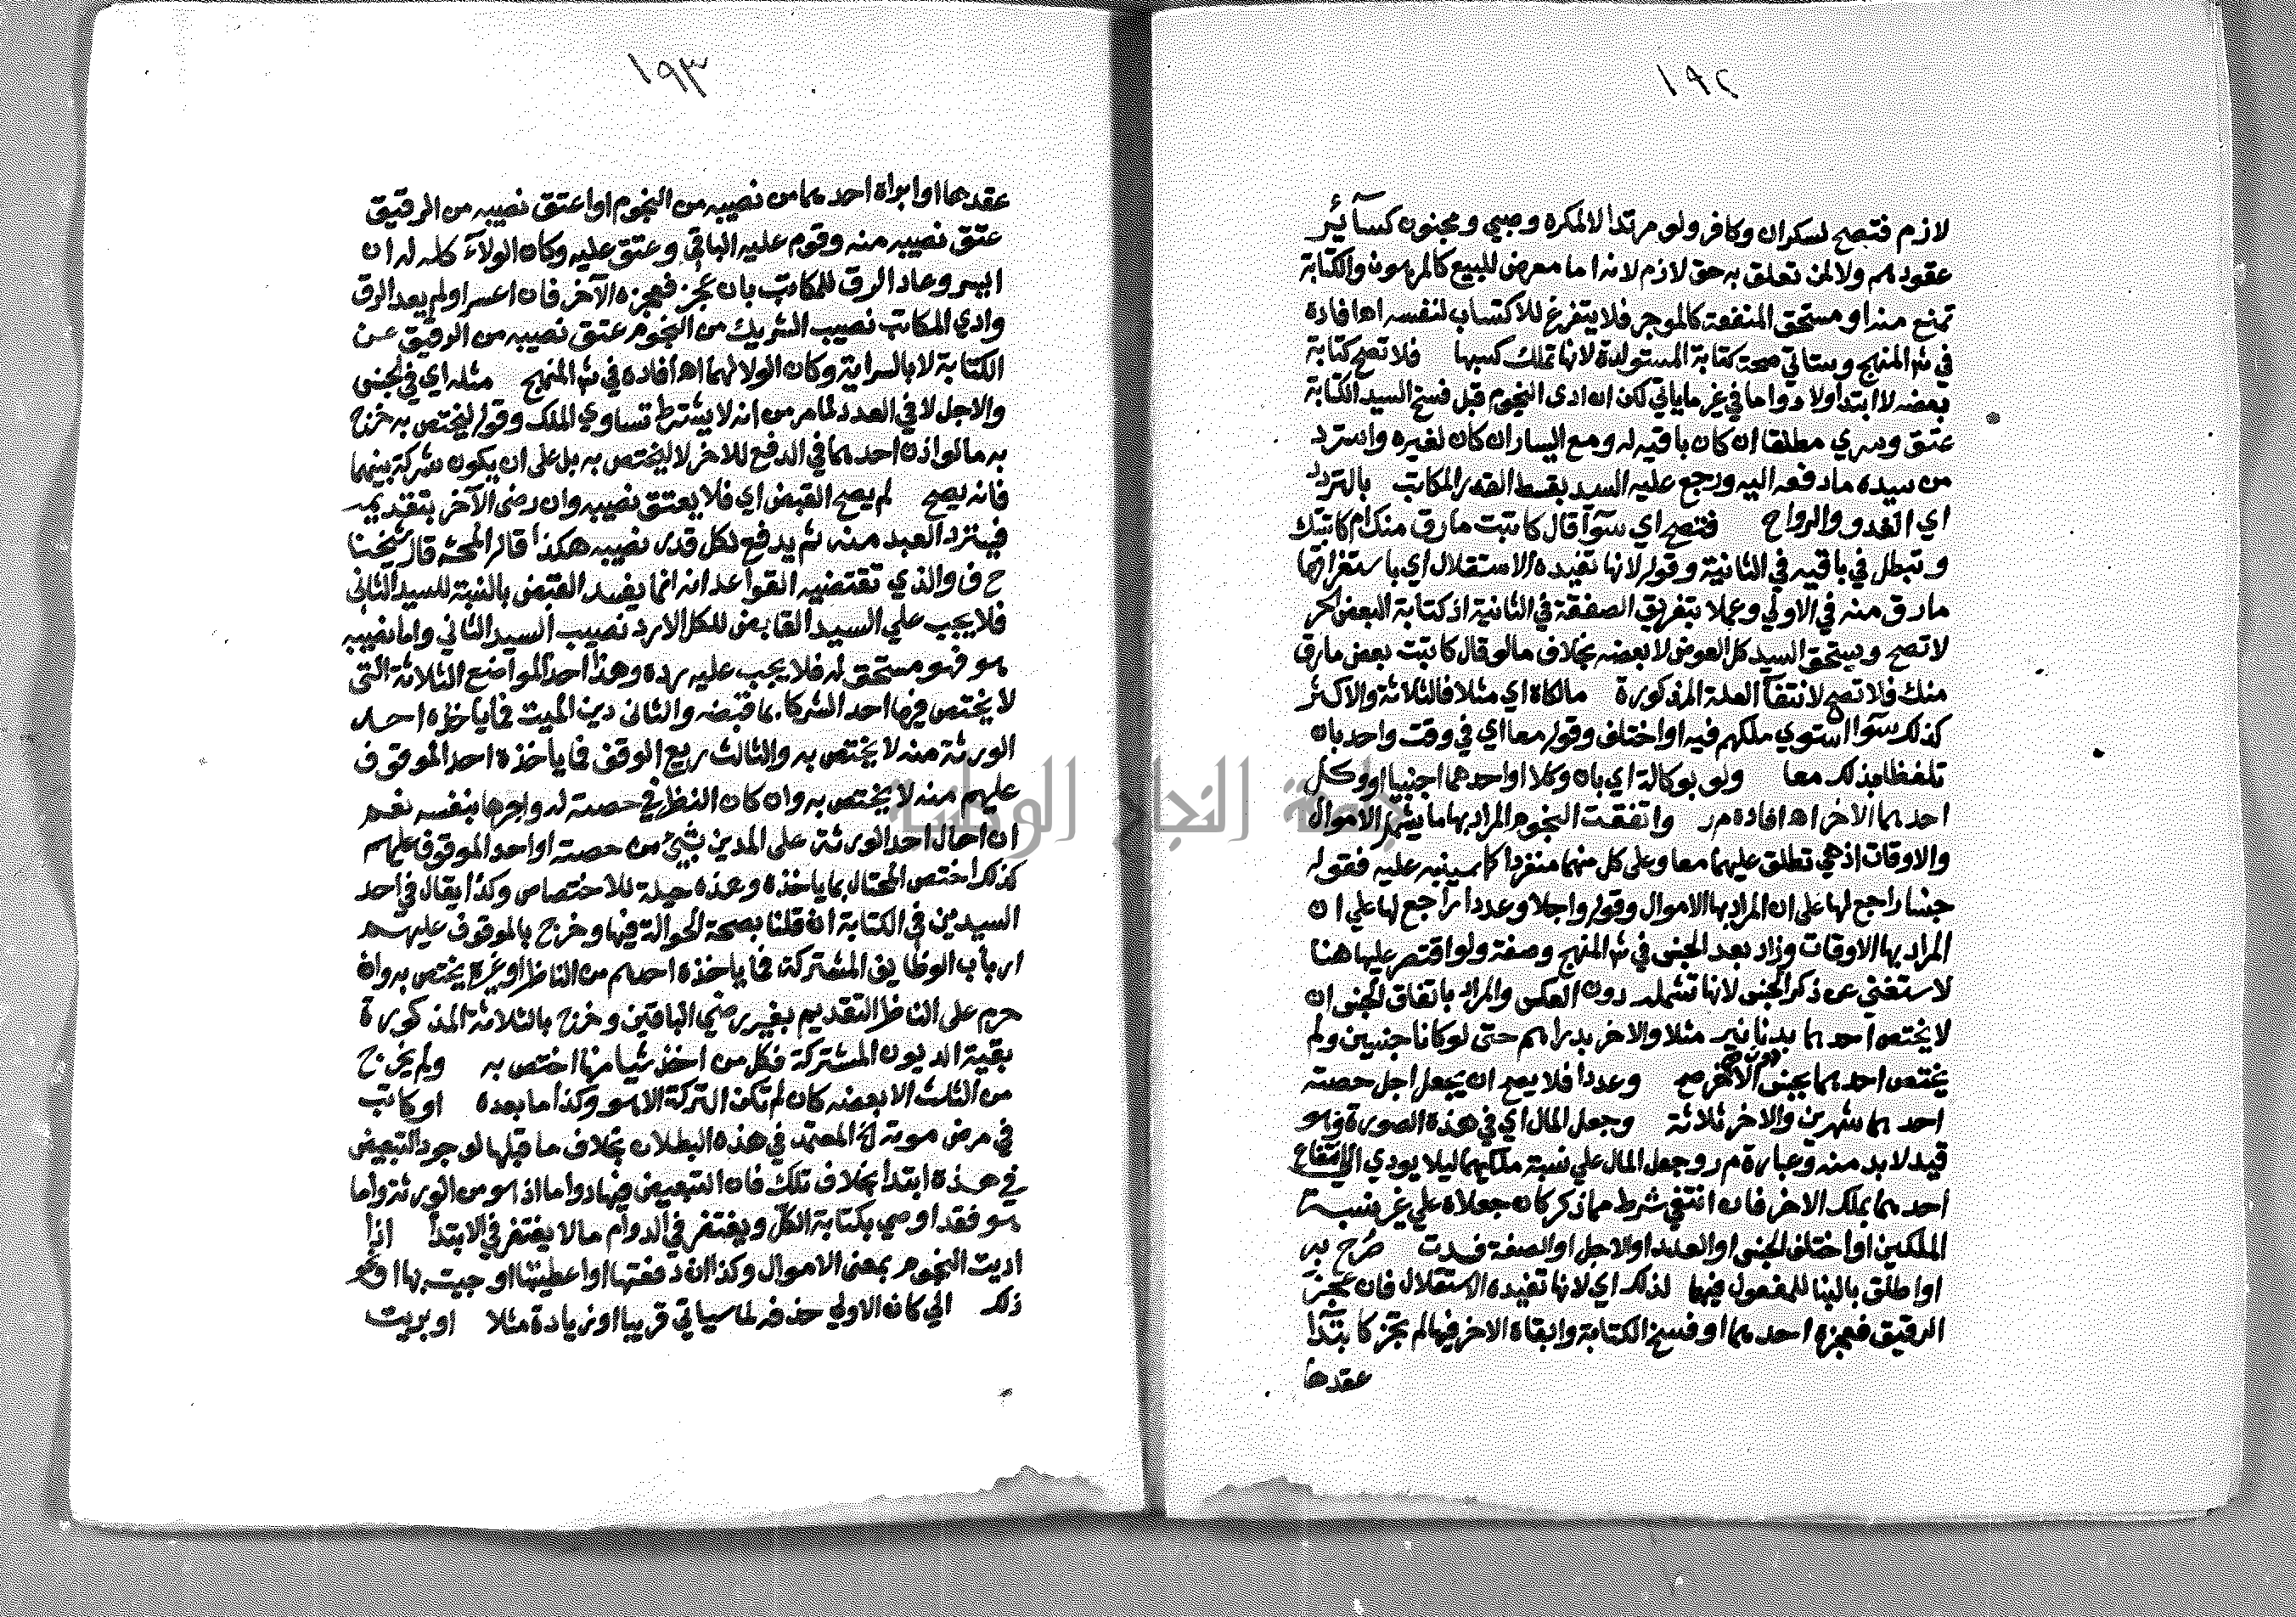 ١٩٢
لازم فتصح لسكران وكافر ولو مرتدا لا لمكره وصبي ومجنون كسآئر
عقودهم ولا لمن تعلق به حق لازم لانه اما معرض للبيع كالمرهون والكتابة
تمنع منه او مستحق المنفعة كالموجر فلا يتفرغ للاكتساب لنفسه اهـ افاده
في شم المنهج وسياتي صحة كتابة المستولدة لانها تملك كسبها فلا تصح كتابة
بعضه لا ابتدا ولا دواما في غير ما ياتي لكن ان ادى النجوم قبل فسخ السيد الكتابة
عتق وسري مطلقا ان كان باقيه له ومع اليسار ان كان لغيره واسترد
من سيده ما دفعه اليه ورجع عليه السيد بقسط القدر المكاتب بالتردد
اي الغدو والرواح فتصح اي سوآ قال كاتبت ما رق منك ام كاتبتك
وتبطل في باقيه في الثانية وقوله لانها تفيده الاستقلال اي باستغراقها
ما رق منه في الاولي وعملا بتفريق الصفقة في الثانية اذ كتابة البعض الحر
لا تصح ويستحق السيد كل العوض لا بعضه بخلاف ما لو قال كاتبت بعض ما رق
منك فلا تصح لانتفآ العلة المذكورة مالكاه اي مثلا فالثلاثة والاكثر
كذلك سوآ استوي ملكهم فيه او اختلف وقوله معا اي في وقت واحد بان
تلفظا بذلك معا ولو بوكالة اي بان وكلا او احدهما اجنبيا او وكل
احدهما الاخر اهـ افاده م ر واتفقت النجوم المراد بها ما يشمل الاموال
والاوقات اذ هي تطلق عليهما معا وعلى كل منهما منفردا كما سينبه عليه فقوله
جنسا راجع لها على ان المراد بها الاموال وقوله واجلا وعددا راجع لها علي ان
المراد بها الاوقات وزاد بعد الجنس في شم المنهج وصفة ولو اقتصر عليها هنا
لاستغني عن ذكر الجنس لانها تشمله دون العكس والمراد باتفاق الجنس ان
لا يختص احدهما بدنانير مثلا والاخر بدراهم حتى لو كانا جنسين ولم
يختص احدهما بجنس دون الاخر صح وعددا فلا يصح ان يجعل اجل حصته
احدهما شهرين والاخر ثلاثة وجعل المال اي في هذه الصورة فهو
قيد لا بد منه وعبارة م ر وجعل المال علي نسبة ملكيهما ليلا يودي الي انتفاع
احدهما بملك الاخر فان انتفي شرط مما ذكر كان جعلاه علي غير نسبة
الملكين او اختلف الجنس او العدد او الاجل او الصفة فسدت صرح به
او اطلق بالبنا للمفعول فيهما لذلك اي لانها تفيده الاستقلال فان عجز
الرقيق فعجزه احدهما او فسخ الكتابة وابقاه الاخر فيها لم تجز كابتدآ
عقدها
١٩٣
عقدها او ابراه احدهما من نصيبه من النجوم او اعتق نصيبه من الرقيق
عتق نصيبه منه وقوم عليه الباقي وعتق عليه وكان الولآء كله له ان
ايسر وعاد الرق للمكاتب بان عجز فعجزه الآخر فان اعسر او لم يعد الرق
وادي المكاتب نصيب الشريك من النجوم عتق نصيبه من الرقيق عن
الكتابة لا بالسراية وكان الولا لهما اهـ افاده في شم المنهج مثله اي في الجنس
والاجل لا في العدد لما مر من انه لا يشترط تساوي الملك وقوله ليختص به خرج
به ما لو اذن احدهما في الدفع للاخر لا ليختص به بل على ان يكون شركة بينهما
فانه يصح لم يصح القبض اي فلا يعتق نصيبه وان رضى الآخر بتقديمه
فيسترد العبد منه ثم يدفع لكل قدر نصيبه هكذا قاله المحشه قال شيخنا
ح ف والذي تقتضيه القواعد انه انما يفسد القبض بالنسبة للسيد الثانى
فلا يجب علي السيد القابض للكل الا رد نصيب السيد الثاني واما نصيبه
هو فهو مستحق له فلا يجب عليه رده وهذا احد المواضع الثلاثة التى
لا يختص فيها احد الشركا بما قبضه والثانى دين الميت فما ياخذه احد
الورثة منه لا يختص به والثالث ريع الوقف فما ياخذه احد الموقوف
عليهم منه لا يختص به وان كان النظر في حصته له واجرها بنفسه نعم
ان احال احد الورثة على المدين بشئ من حصته او احد الموقوف عليهم
كذلك اختص المحتال بما ياخذه وهذه حيلة للاختصاص وكذا يقال في احد
السيدين في الكتابة ان قلنا بصحة الحوالة فيها وخرج بالموقوف عليهم
ارباب الوظايف المشتركة فما ياخذه احدهم من الناظر او غيره يختص به وان
حرم على الناظر التقديم بغير رضي الباقين وخرج بالثلاثة المذكورة
بقية الديون المشتركة فكل من اخذ شيا منها اختص به ولم يخرج
من الثلث الا بعضه كان لم تكن التركة الا هو وكذا ما بعده او كاتب
في مرض موته الخ المعتمد في هذه البطلان بخلاف ما قبلها لوجود التبعيض
في هذه ابتدا بخلاف تلك فان التبعيض فيها دواما اذ هو من الورثة واما
هو فقد اوصي بكتابة الكل ويغتفر في الدوام ما لا يغتفر في الابتدا اذا
اديت النجوم بمعنى الاموال وكذا ان دفعتها او اعطيتها او جيت بها او نحو
ذلك الي كان الاولي حذفه لما سياتي قريبا او زيادة مثلا او بريت
جامعة النجاح الوطنية